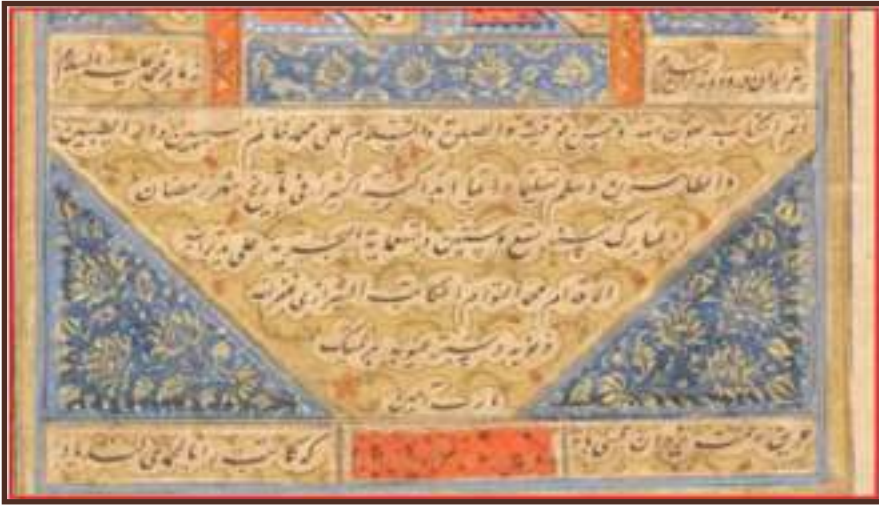 هزاران درود و هزاران سلام
ز ما بر محمد علیه السلام
اتم الکتاب بعون الله وحسن توفیقه والصلوة والسلام علی محمد خاتم النبیین واله الطیبین
والطاهرین وسلم تسلیما دائما ابدا کثیرا فی تاریخ شهر رمضان
المبارک سنه تسع وستین وتسعمایة الهجریه علی ید تراب
الاقدام محمد القوام الکاتب الشیرازی غفر الله
ذنوبه وستر عیوبه برحمتک
یارب آمین
غریق رحمت یزدان کسی باد
که کاتب را بالحمدی کند یاد